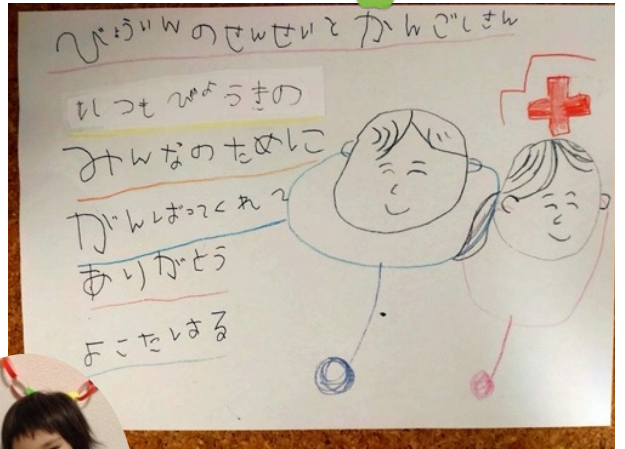 びょういんのせんせいとかんごしさん
いつもびょうきの
みんなのために
がんばってくれて
ありがとう
よこたはる